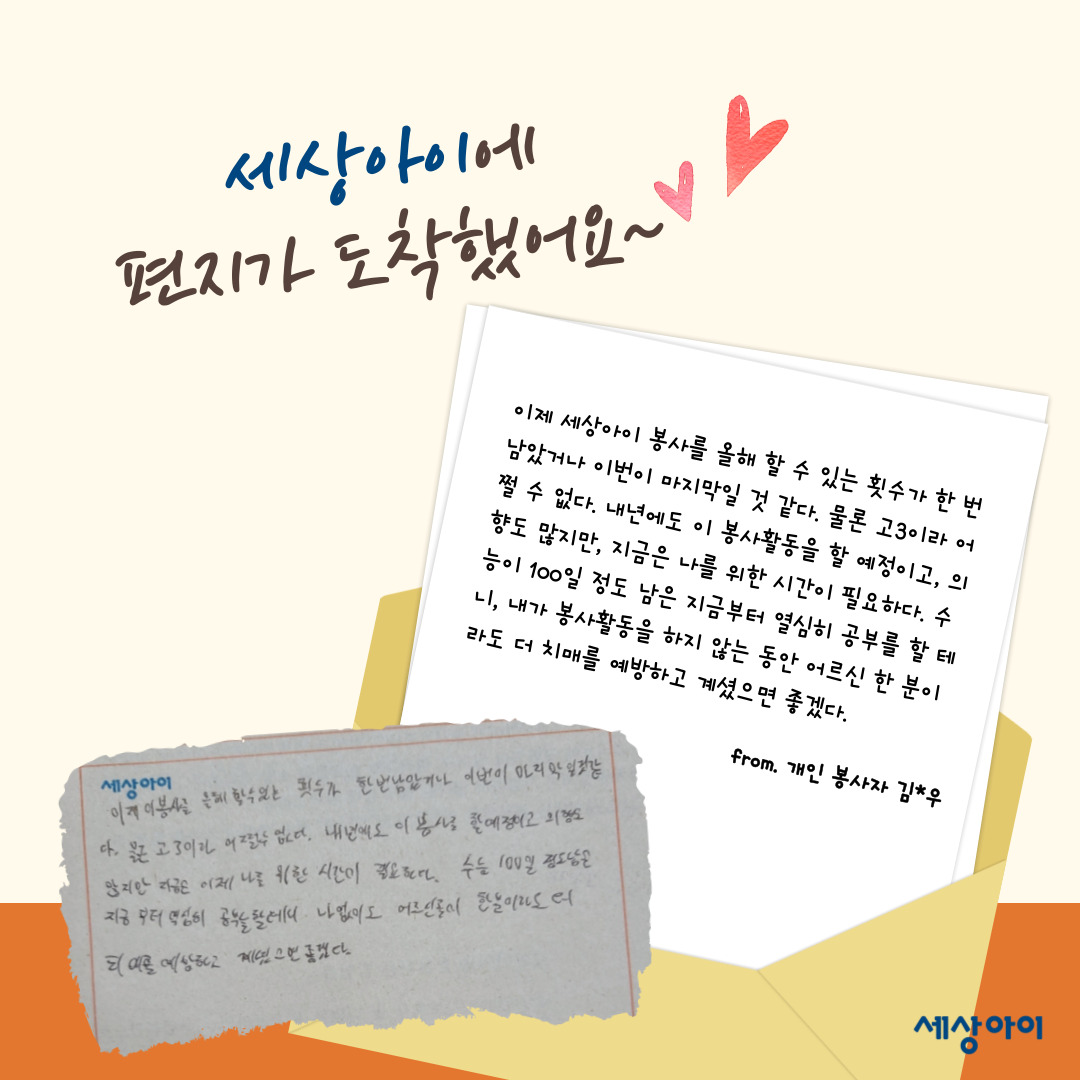 세상아이에
편지가 도착했어요~
이제 세상아이 봉사를 올해 할 수 있는 횟수가 한 번
남았거나 이번이 마지막일 것 같다. 물론 고3이라 어
쩔 수 없다. 내년에도 이 봉사활동을 할 예정이고, 의
향도 많지만, 지금은 나를 위한 시간이 필요하다. 수
능이 100일 정도 남은 지금부터 열심히 공부를 할 테
니, 내가 봉사활동을 하지 않는 동안 어르신 한 분이
라도 더 치매를 예방하고 계셨으면 좋겠다.
from. 개인 봉사자 김*우
세상아이
이제 이봉사를 올해 할수있는 횟수가 한번남았거나 이번이 마지막일것같
다. 물론 고3이라 어쩔수 없다. 내년에도 이 봉사를 할예정이고 의향도
많지만 지금은 이제 나를 위한 시간이 필요하다. 수능 100일 정도남은
지금 부터 열심히 공부를할테니 나없이도 어르신들이 한분이라도 더
치매를 예상하고 계셨으면좋겠다.
세상아이